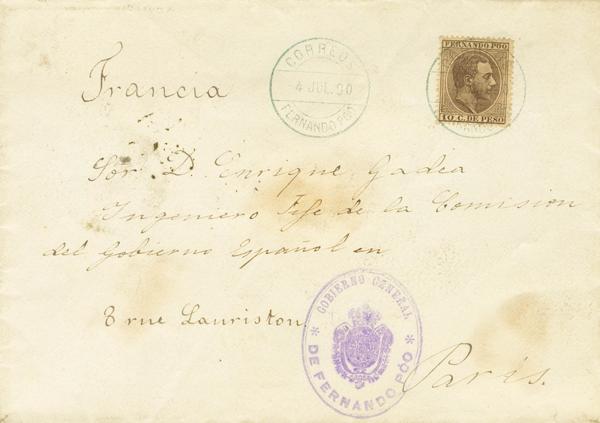 CORREOS
4 JUL. 90
FERNANDO PÓO
FERNANDO POO
10 C. DE PESO
Francia
Sor. D. Enrique Gadea
Ingeniero Jefe de la Comision
del Gobierno Español en
8 rue Lauriston
GOBIERNO GENERAL
* DE FERNANDO PÓO *
Paris.